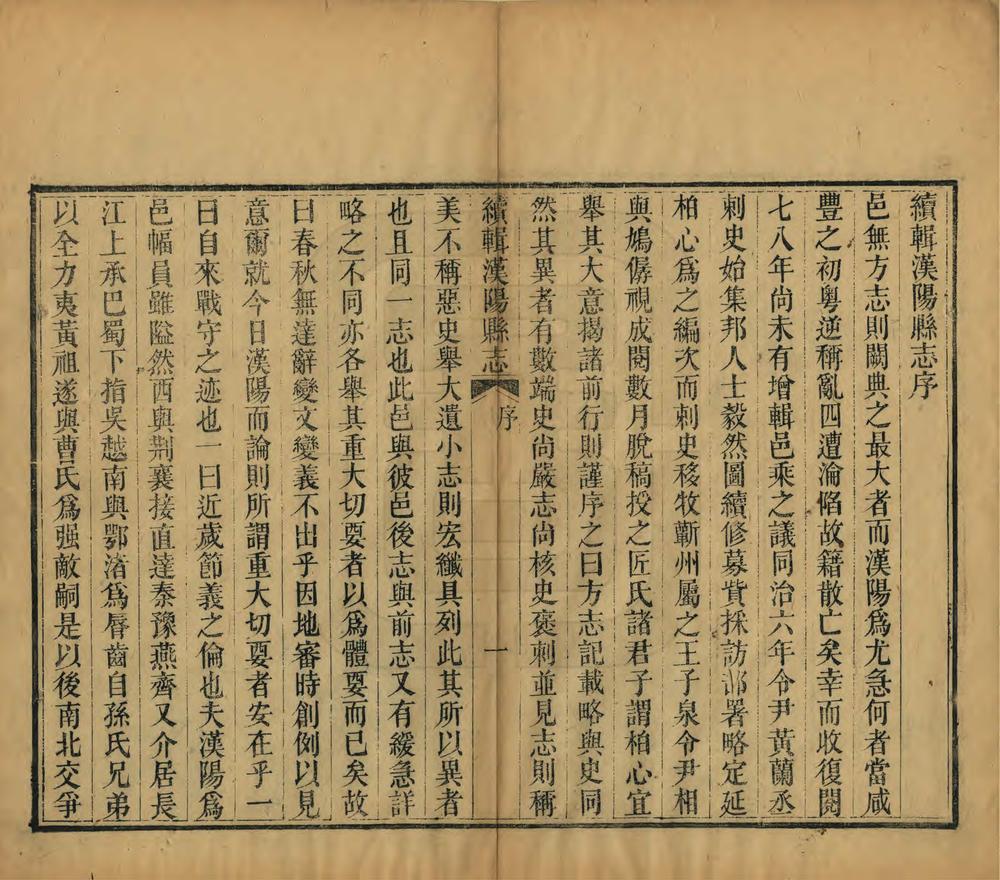 續輯漢陽縣志序
邑無方志則闕典之最大者而漢陽爲尤急何者當咸
豐之初粵逆稱亂四遭淪陷故籍散亡矣幸而收復閱
七八年尚未有增輯邑乘之議同治六年令尹黃蘭丞
刺史始集邦人士毅然圖續修募貲採訪部署略定延
柏心爲之編次而刺史移牧蘄州屬之王子泉令尹相
與鳩僝視成閱數月脫稿授之匠氏諸君子謂柏心宜
舉其大意揭諸前行則謹序之曰方志記載略與史同
然其異者有數端史尚嚴志尚核史褒刺並見志則稱
續輯漢陽縣志 序 一
美不稱惡史舉大遺小志則宏纖具列此其所以異者
也且同一志也此邑與彼邑後志與前志又有緩急詳
略之不同亦各舉其重大切要者以爲體要而已矣故
曰春秋無達辭變文變義不出乎因地審時創例以見
意爾就今日漢陽而論則所謂重大切要者安在乎一
曰自來戰守之迹也一曰近歲節義之倫也夫漢陽爲
邑幅員雖隘然西與荆襄接直達秦豫燕齊又介居長
江上承巴蜀下指吳越南與鄂渚爲脣齒自孫氏兄弟
以全力夷黃祖遂與曹氏爲强敵嗣是以後南北交爭